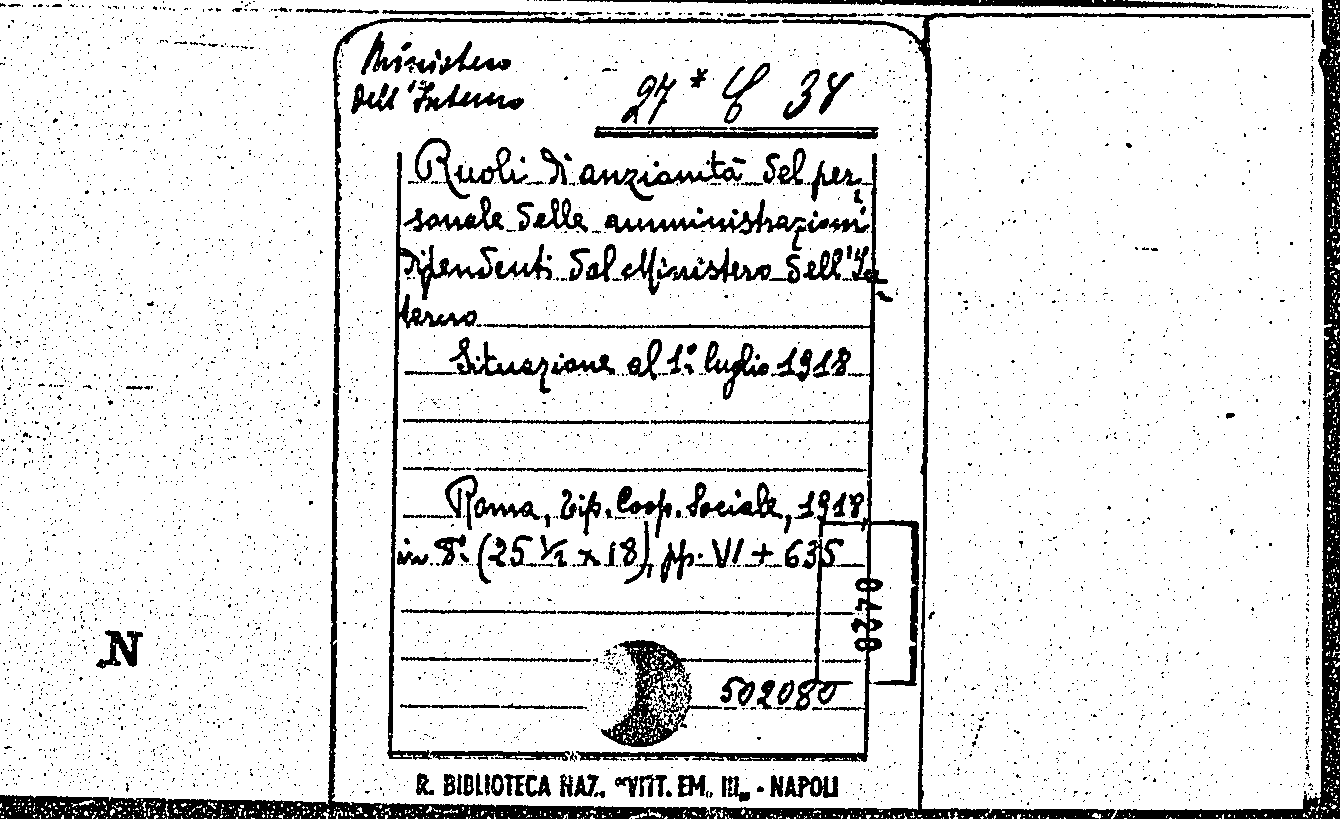 Ministero
dell'Interno
27* C 34
Ruoli di anzianità del per-
sonale delle amministrazioni
dipendenti dal Ministero dell'In-
terno
Situazione al 1º luglio 1918
Roma, Tip. Coop. Sociale, 1918
in 8º (25 ½ x 18), pp. VI + 635
0270
N
502080
R. BIBLIOTECA NAZ. "VITT. EM. III" - NAPOLI